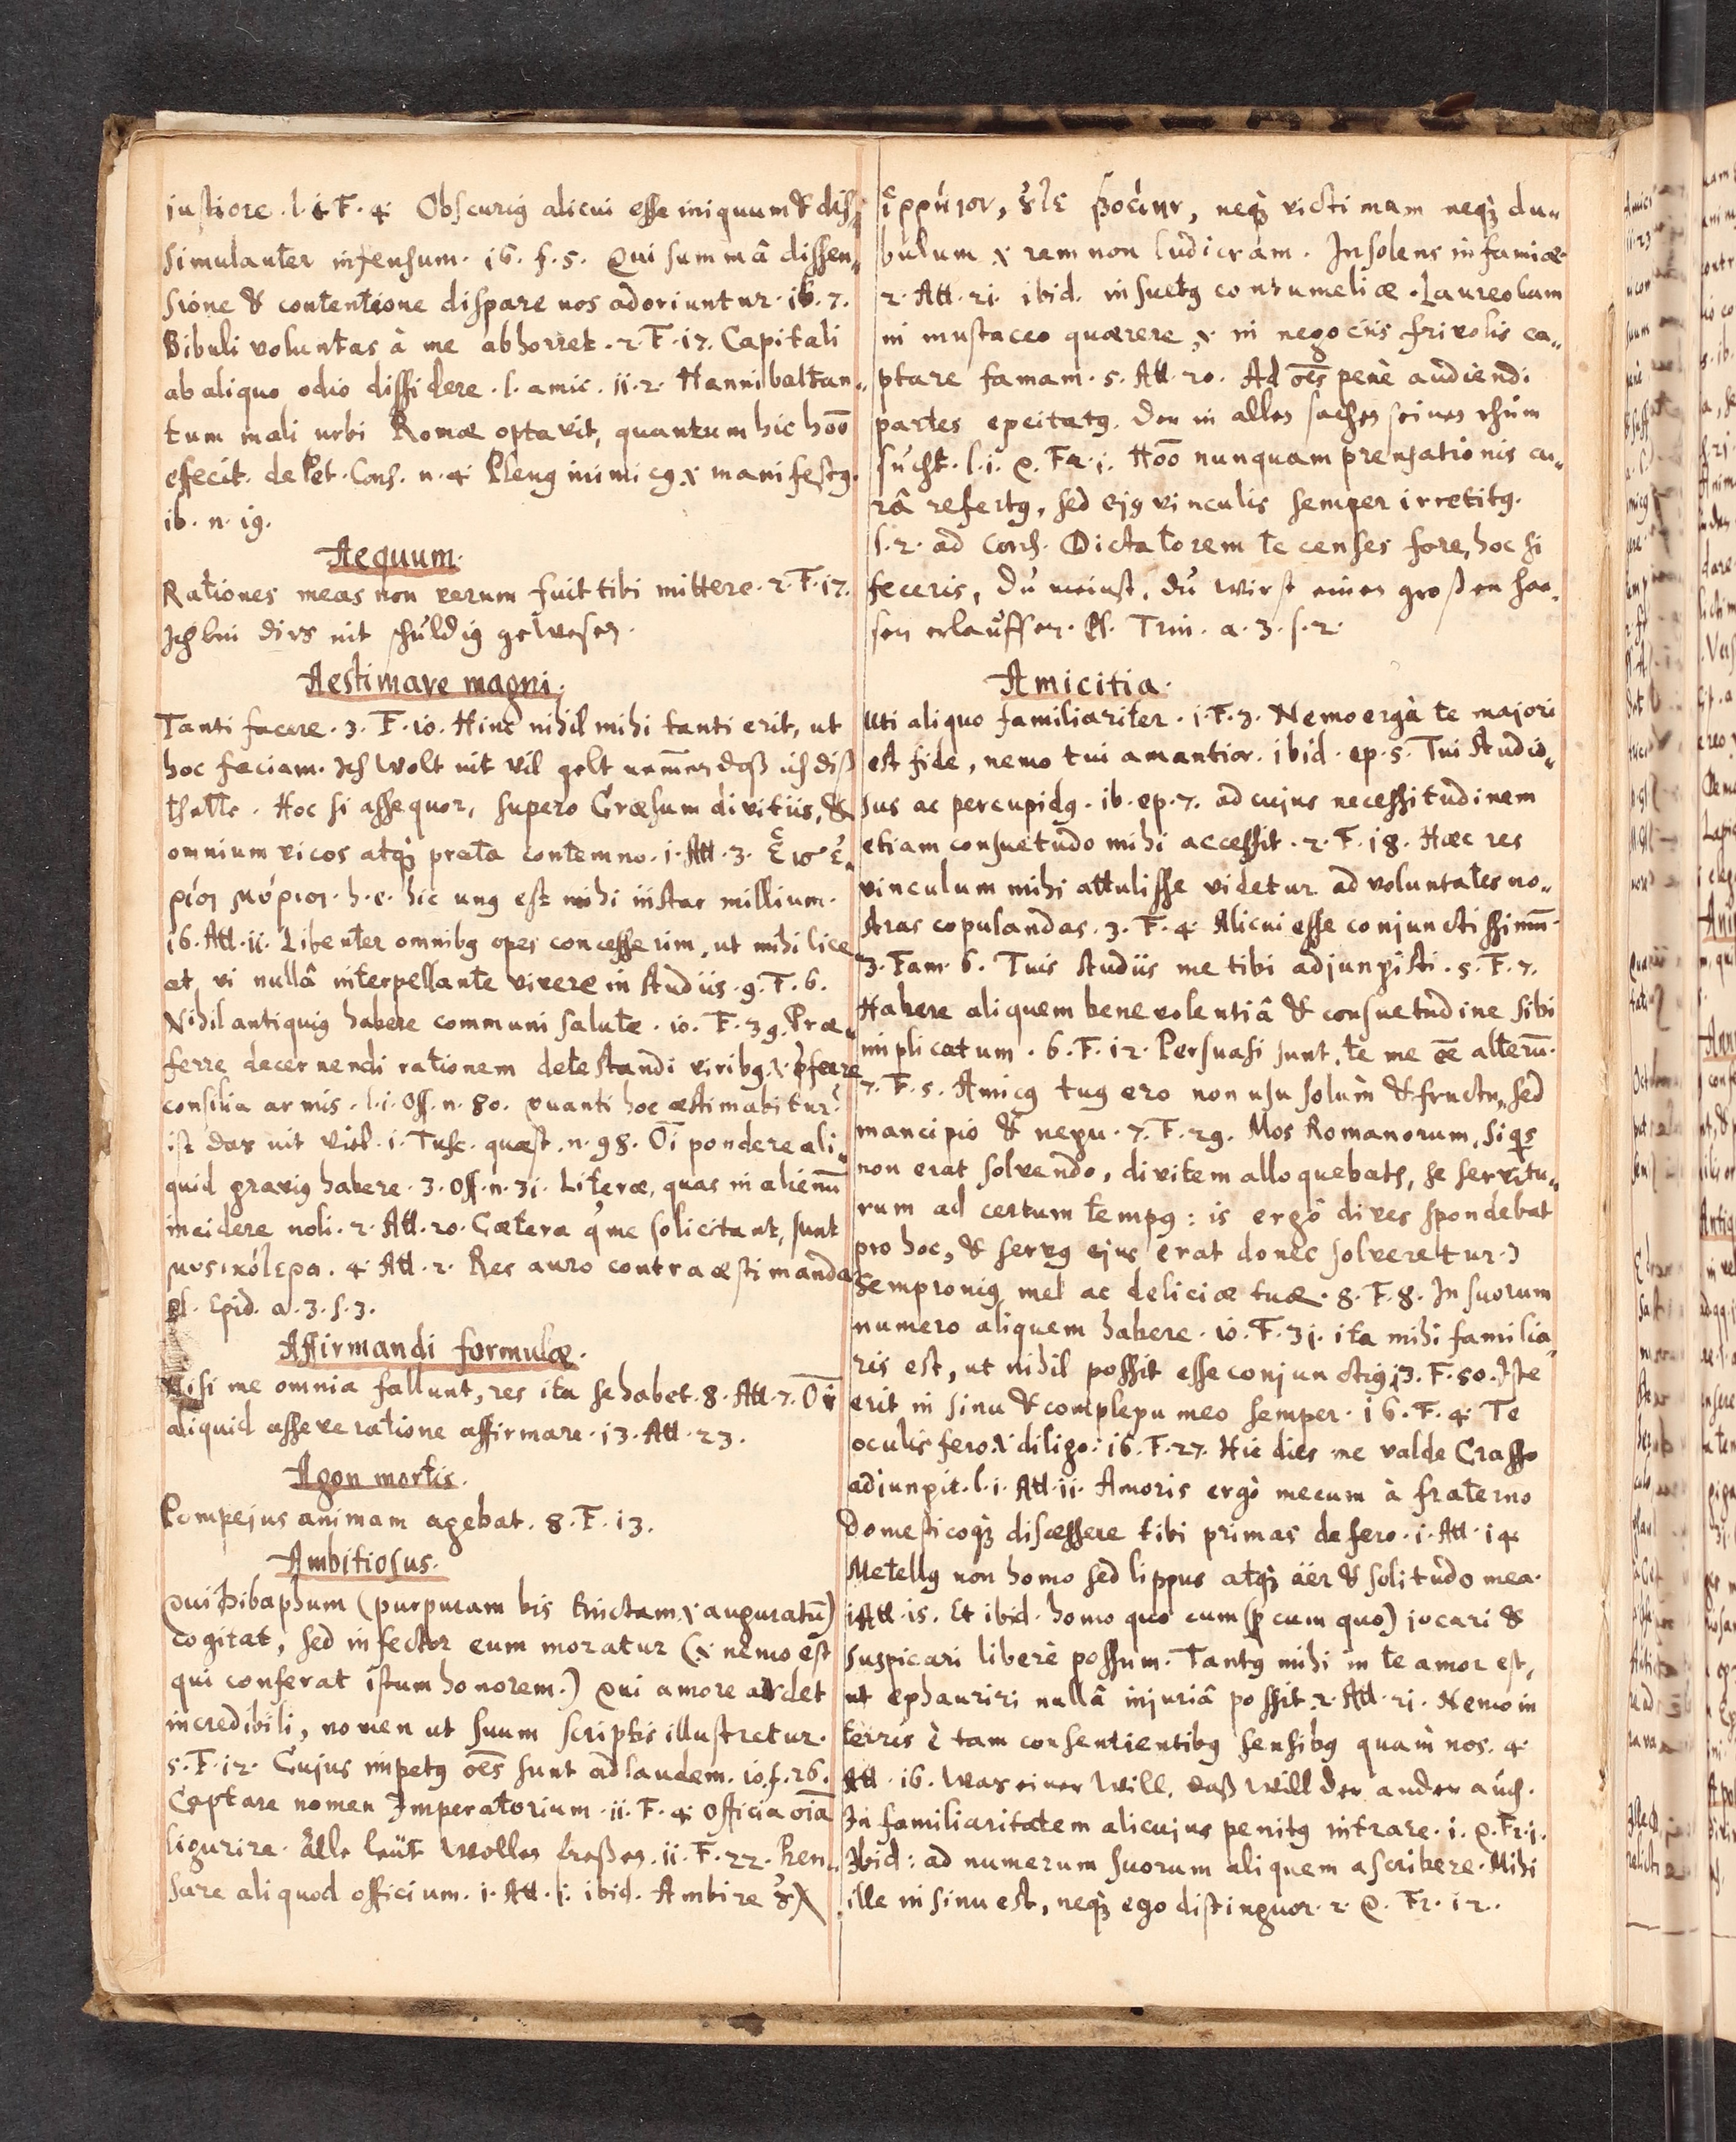 justiore. l. i. F. 4. Obscurig alicui esse iniquum & dis-
simulanter infensum. 16. f. 5. Qui summâ dissen-
sione & contentione dispare nos adoriuntur. ib. 7.
Bibuli voluntas à me abhorret. 2. F. 17. Capitali
ab aliquo odio dissidere. l. amic. 11. 2. Hannibal tan-
tum mali urbi Romæ optavit, quantum hic hōō
effecit. de Pet. Cons. n. 4. Pleng inimicg manifestg.
ib. n. 19.
Aequum.
Rationes meas non verum fuit tibi mittere. 2. F. 17.
Ich bin dirs nit schuldig gewesen.
Aestimare magni.
Tanti facere. 3. F. 10. Hinc nihil mihi tanti erit, ut
hoc faciam. Ich wolt nit vil gelt nem̄en daß ich diß
thette. Hoc si assequor, supero Cræsum divitiis, &
omnium vicos atqꝫ prata contemno. 1. Att. 3.
h. e. hic ung est mihi instar millium.
16. Att. 11. Libenter omnibg opes concesserim, ut mihi lice
at, vi nullâ interpellante vivere in studiis. 9. F. 6.
Nihil antiquig habere communi salute. 10. F. 39. Præ-
ferre decernendi rationem detestandi viribg
consilia armis. l. 1. Off. n. 80. quanti hoc æstimabitur?
ist das nit viel. 1. Tusc. quæst. n. 98. Oī pondere ali-
quid gravig habere. 3. Off. n. 31. Literæ, quas in alienū
incidere noli. 2. Att. 20. Cætera q̓ me solicitant, sunt
4. Att. 2. Res auro contra æstimanda
Pl. Epid. a. 3. s. 3.
Affirmandi formulæ.
Nisi me omnia fallunt, res ita se habet. 8. Att. 7. Oī
aliquid asseveratione affirmare. 13. Att. 23.
Agon mortis.
Pompejus animam agebat. 8. F. 13.
Ambitiosus.
Qui Dibaphum (purpuram bis tinctam auguratū)
cogitat, sed infector eum moratur (nemo est
qui conferat istum honorem.) Qui amore ardet
incredibili, nomen ut suum scriptis illustretur.
5. F. 12. Cujus impetg oēs sunt ad laudem. 10. f. 26.
Captare nomen Imperatorium. 11. F. 4. Officia oīā
ligurire. Alle leüt wollen freßen. 11. F. 22. Pren-
sare aliquod officium. 1. Att. 1. ibid. Ambire
neqꝫ victimam neqꝫ du-
bulum rem non ludicram. Insolens infamiæ
2. Att. 21. ibid. insuetg contumeliæ. Laureolam
in mustaceo quærere in negociis frivolis ca-
ptare famam. 5. Att. 20. Ad oēs penè audiendi
partes epcitatg. Der in allen sachen seinen rhum
sücht. l. 1. Q. Fr. 1. Hōō nunquam prensationis cu-
râ refertg, sed ejg vinculis semper irretitg.
l. 2. ad Cons. Dictatorem te censes fore, hoc si
feceris, du meinst, du wirst einen großen hae-
sen erlauffen. Pl. Trin. a. 3. s. 2.
Amicitia.
Uti aliquo familiariter. 1. F. 3. Nemo ergà te majori
est fide, nemo tui amantior. ibid. ep. 5. Tui studio-
sus ac percupidg. ib. ep. 7. ad cujus necessitudinem
etiam consuetudo mihi accessit. 2. F. 18. Hæc res
vinculum mihi attulisse videtur ad voluntates no-
stras copulandas. 3. F. 4. Alicui esse conjunctissimū.
3. Fam. 6. Tuis studiis me tibi adjunpisti. 5. F. 7.
Habere aliquem benevolentiâ & consuetudine sibi
implicatum. 6. F. 12. Persuasi sunt, te me ēē alterū.
7. F. 5. Amicg tug ero non usu solùm & fructu, sed
mancipio & nepu. 7. F. 29. Mos Romanorum, siqs
non erat solvendo, divitem alloquebatr, se servitu-
rum ad certum tempg: is ergo dives spondebat
pro hoc, & servg ejus erat donec solveretur.)
Sempronig mel ac deliciæ tuæ. 8. F. 8. In suorum
numero aliquem habere. 10. F. 31. ita mihi familia-
ris est, ut nihil possit esse conjunctig. 13. F. 50. Iste
erit in sinu & complepu meo semper. 16. F. 4. Te
oculis fero diligo. 16. F. 27. Hic dies me valde Crasso
adjunpit. l. 1. Att. 11. Amoris ergò mecum à fraterno
domesticoqꝫ discessere tibi primas defero. 1. Att. 14
Metellg non homo sed lippus atqꝫ äer & solitudo mea.
1. Att. 15. Et ibid. homo quo cum (p cum quo) jocari &
suspicari liberè possum. Tantg mihi in te amor est,
ut ephauriri nullâ injuriâ possit. 2. Att. 21. Nemo in
terris è tam consentientibg sensibg quàm nos. 4.
Att. 16. Was einer will, daß will der ander auch.
In familiaritatem alicujus penitg intrare. 1. Q. Fr. 1.
Ibid: ad numerum suorum aliquem ascribere. Mihi
ille in sinu est, neqꝫ ego distinguor. 2. Q. Fr. 12.